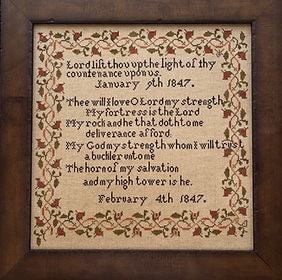 Lord lift thou up the light of thy
countenance upon us.
January 9th 1847.
Thee will I love O Lord my strength
My fortress is the Lord
My rock and he that doth to me
deliverance afford.
My God my strength whom I will trust
a buckler unto me
The horn of my salvation
and my high tower is he.
February 4th 1847.